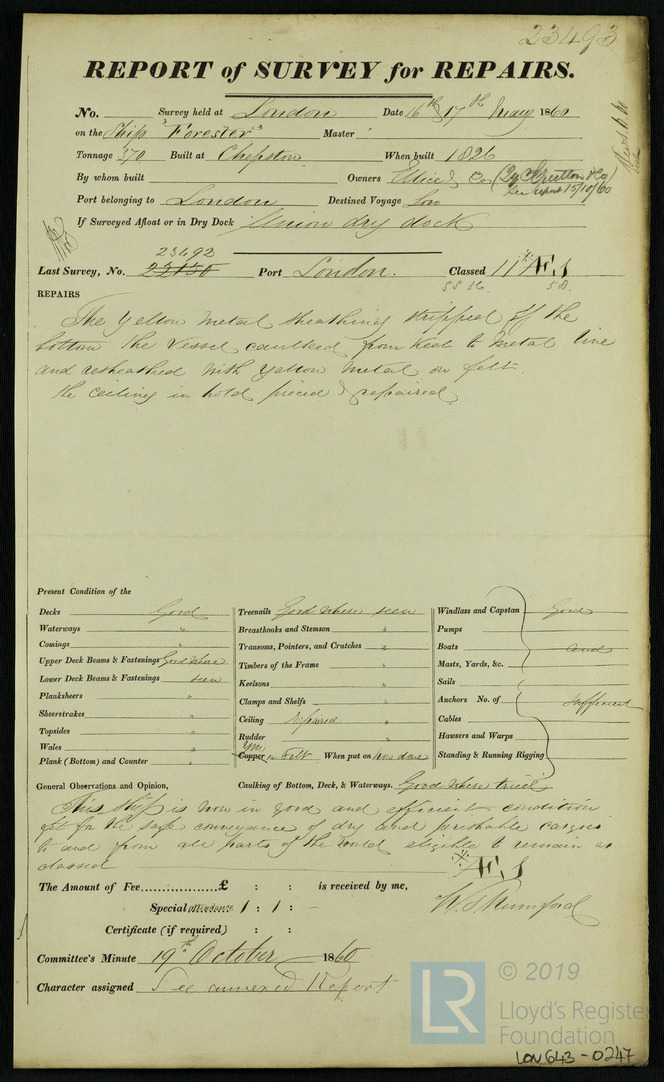 23493
REPORT of SURVEY for REPAIRS.
No. Survey held at London Date 16th & 17th May 1860
on the Ship "Forester" Master
Tonnage 370 Built at Chepstow When built 1826
By whom built Owners Ellice & Co (
See report 15/10/60
Port belonging to London Destined Voyage
If Surveyed Afloat or in Dry Dock Union dry dock
23492
Last Survey, No. 22150 Port London. Classed 11th Æ1
SS 56 58
REPAIRS
The Yellow metal sheathing stripped off the
bottom the vessel caulked from keel to metal line
and resheathed with yellow metal on felt.
the ceiling in hold pieced & repaired
Present Condition of the
Decks Good
Waterways "
Comings "
Upper Deck Beams & Fastenings Good where
Lower Deck Beams & Fastenings seen
Planksheers "
Sheerstrakes "
Topsides "
Wales "
Plank (Bottom) and Counter "
Treenails Good where seen
Breasthooks and Stemson "
Transoms, Pointers, and Crutches "
Timbers of the Frame "
Keelsons "
Clamps and Shelfs "
Ceiling repaired
Rudder "
YM
Copper on Felt When put on now done
Windlass and Capstan Good
Pumps
Boats and
Masts, Yards, &c.
Sails
Anchors No. of sufficient
Cables
Hawsers and Warps
Standing & Running Rigging
General Observations and Opinion, Caulking of Bottom, Deck, & Waterways. Good where tried
This ship is now in good and efficient condition
& fit for the safe conveyance of dry and perishable cargoes
to and from all parts of the world eligible to remain as
classed Æ1
The Amount of Fee £ : : is received by me,
Special attendance 1 : 1 : –
W. S. Rumford
Certificate (if required) : :
Committee's Minute 19th October 1860
Character assigned See annexed Report
LR © 2019
Lloyd's Register
Foundation
LON643-0247